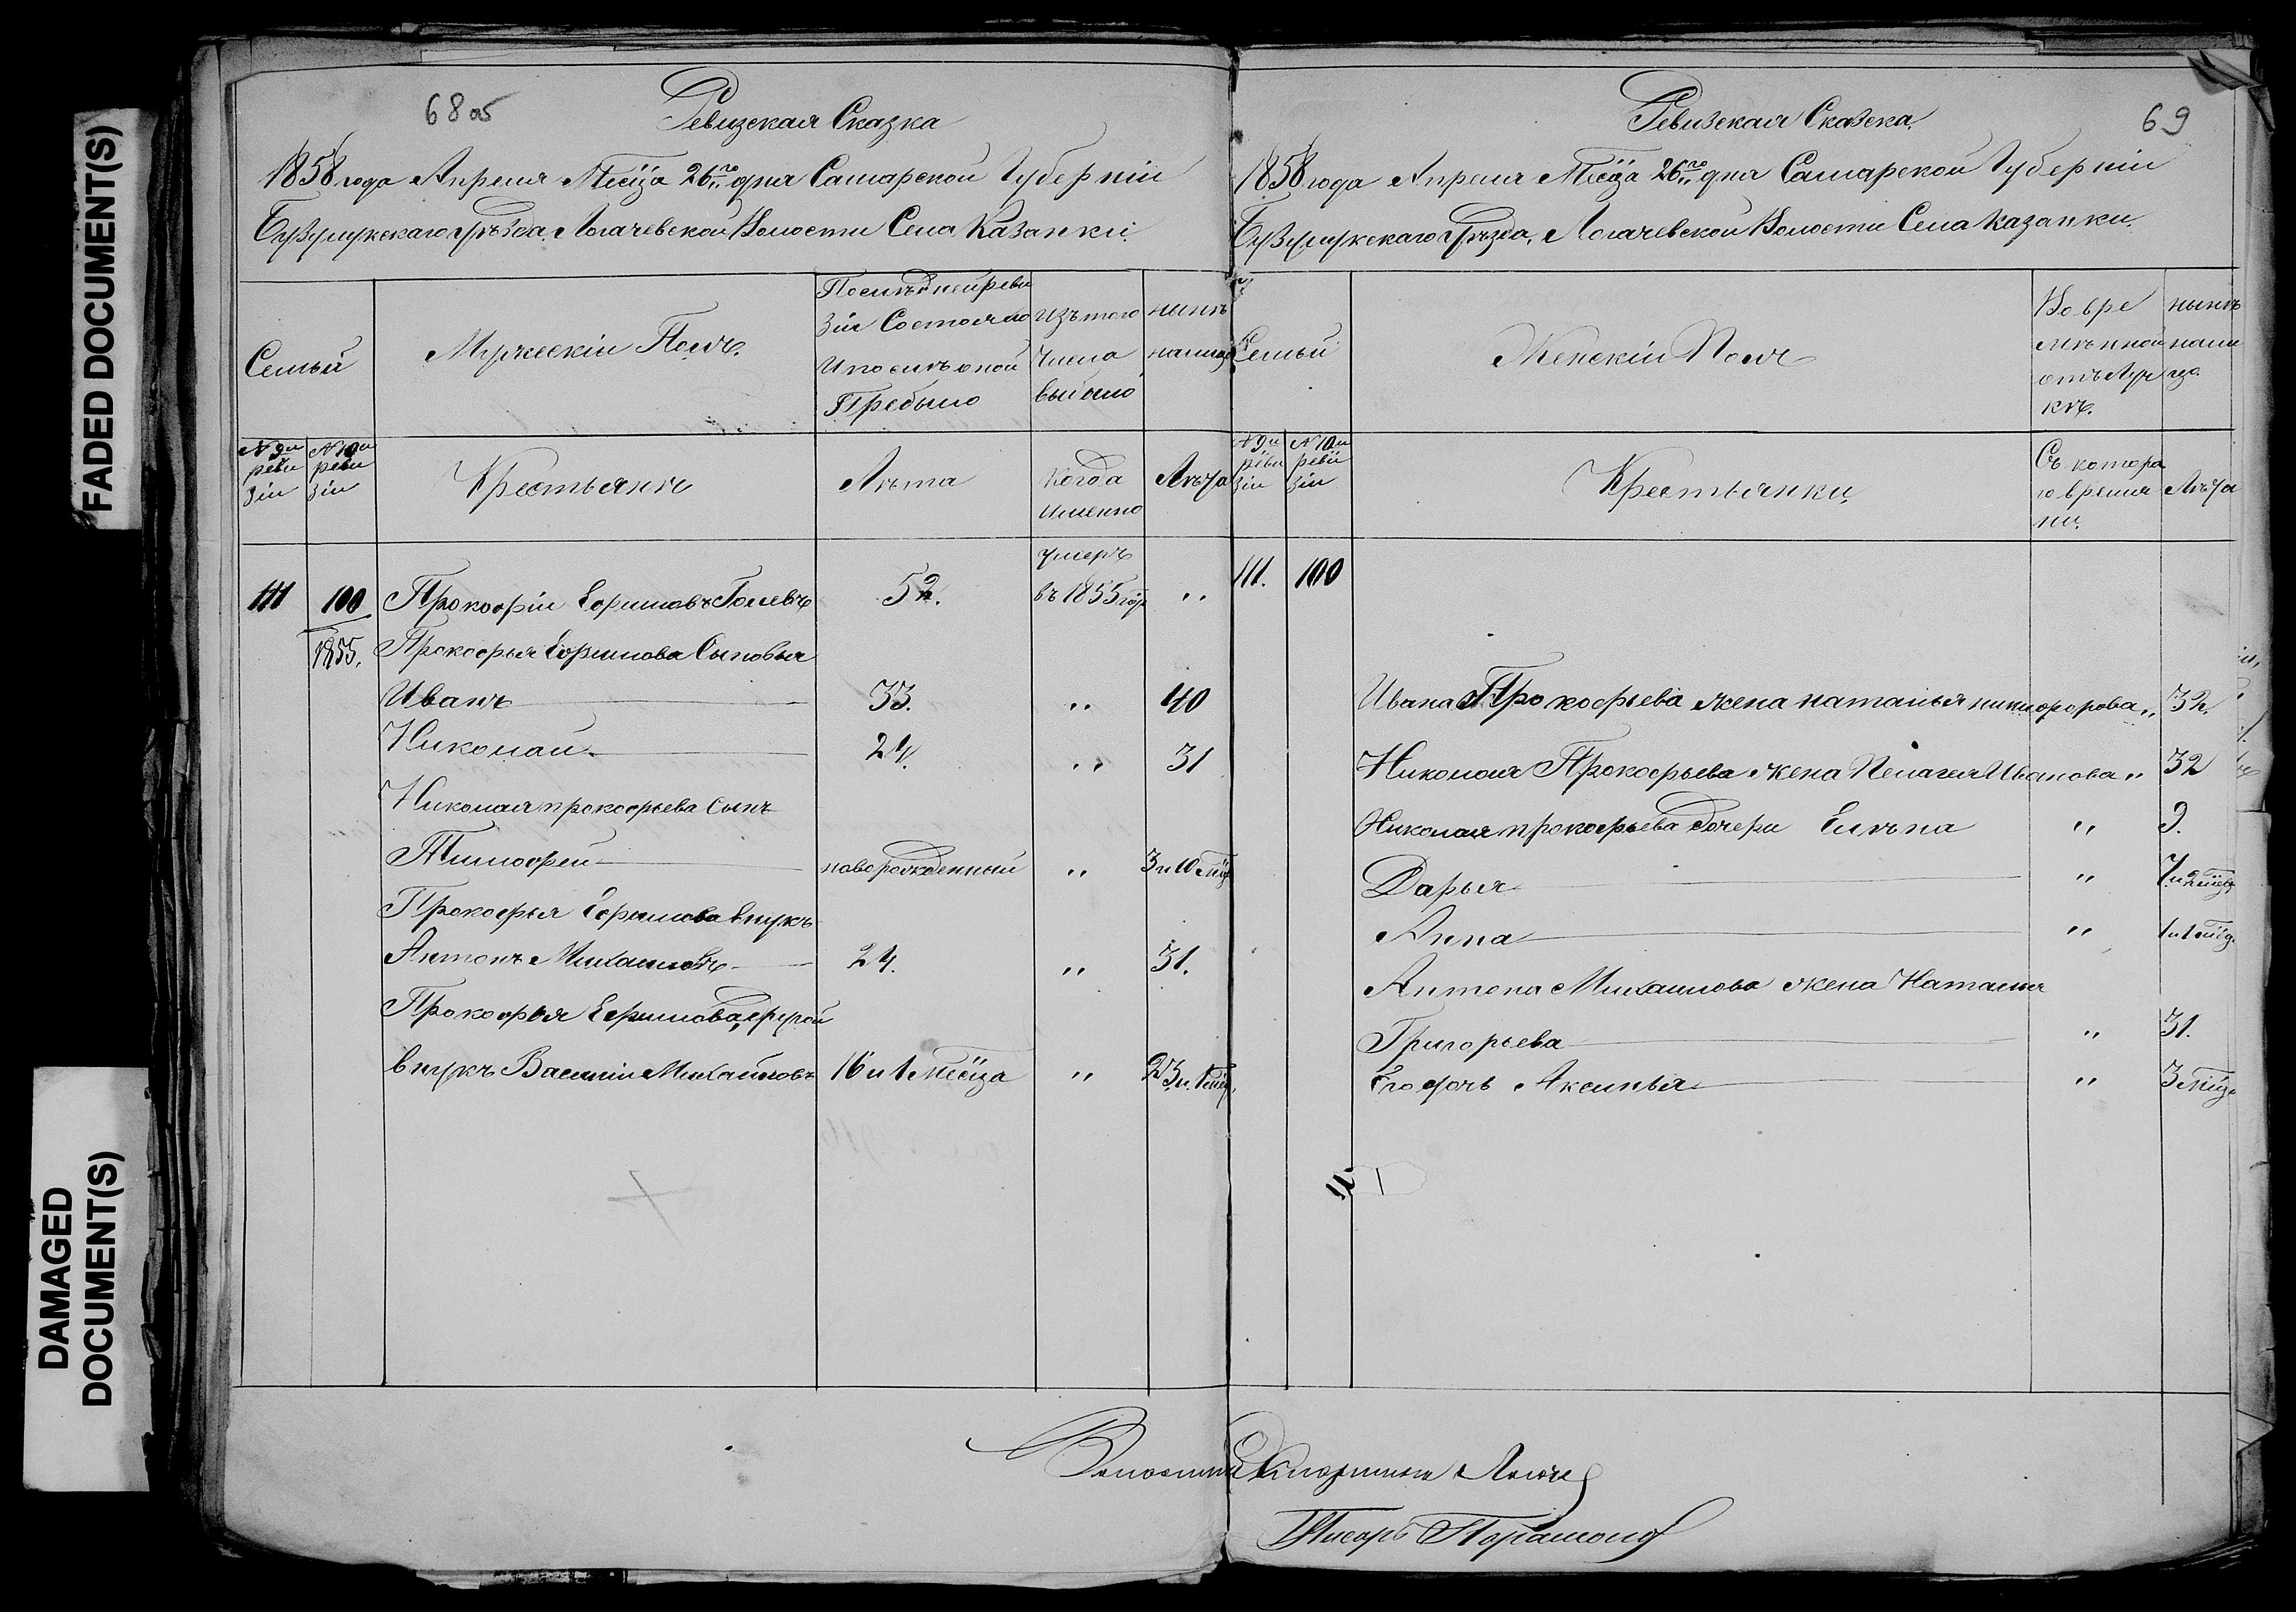 FADED DOCUMENT(S)
DAMAGED
DOCUMENT(S)
68об
Ревизская Сказка
1858 года Апреля Мсца 26го дня Самарской Губерніи
Бузулукскаго Уѣзда, Логачевской Волости Села Казанки
Семьи
Мужескій Полъ.
Послѣдней реви
зіи Состояло
и после оной
Прибыло
Изъ того
числа
выбыло
нынѣ
на лицо
№ 9й
реви
зіи
№ 10й
реви
зіи
Крестьянъ
Лѣта
Когда
именно
Лѣта
111
100
Прокофій Ефимовъ
52.
умеръ
въ 1855 год
„
1855.
Прокофья Ефимова Сыновья
Иванъ
33.
„
40
Николай
24.
„
31
Николая прокофьева сынъ
Тимофей
новорожденный
„
3 и 10 мсц
Прокофья Ефимова внукъ
Антонъ Михаиловъ
24.
„
31.
Прокофья Ефимова, другой
внукъ Василій Михайловъ
16 и 1 мсца
„
23 и 1 мсц.
69
Ревизская Сказка.
1858 года Апреля Мсца 26го дня Самарской Губерніи
Бузулукскаго Уѣзда, Логачевской Волости Села Казанки.
Семьи
Женскій Полъ
Во вре
мѣнной
отълуч
кѣ.
нынѣ
нали
цо.
№ 9й
реви
зіи
№ 10й
реви
зіи
Крестьянки
Съ котора
го време
ни.
Лѣта
111.
100
Ивана Прокофьева жена наталья никифорова „ 32.
Николая Прокофьева жена Пелагея Иванова „ 32
Николая прокофьева дочери Елѣна „ 9.
Дарья „ 7 и 2 мсца
Анна „ 1 и 1 мсц.
Антона Михаилова жена Наталья
Григорьева „ 31.
Его дочь Аксинья „ 3 мсца
Писарь